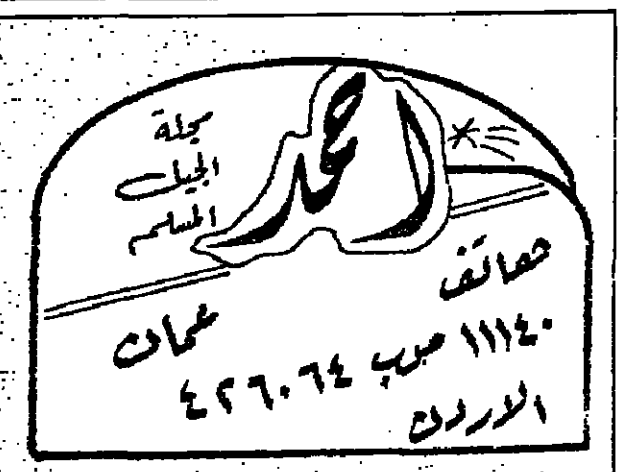 مجلة
الجيل
المسلم
هاتف
عمان
١١١٤٠ صوب ٤٢٦٠٦٤
الاردن